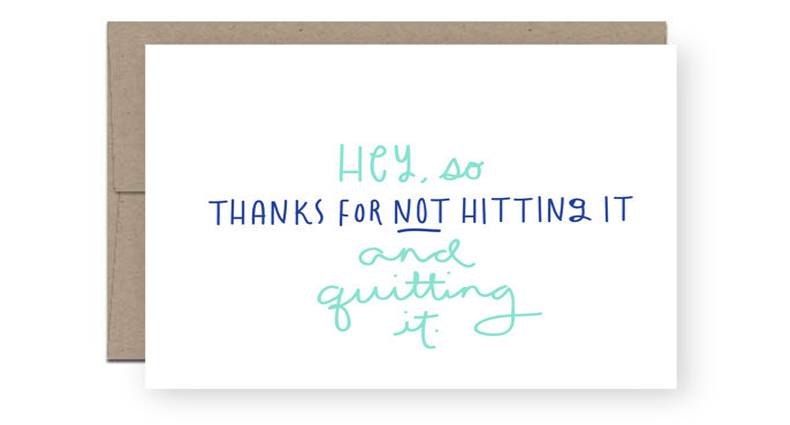 HEY, so
THANKS FOR NOT HITTING IT
and
quitting
it.